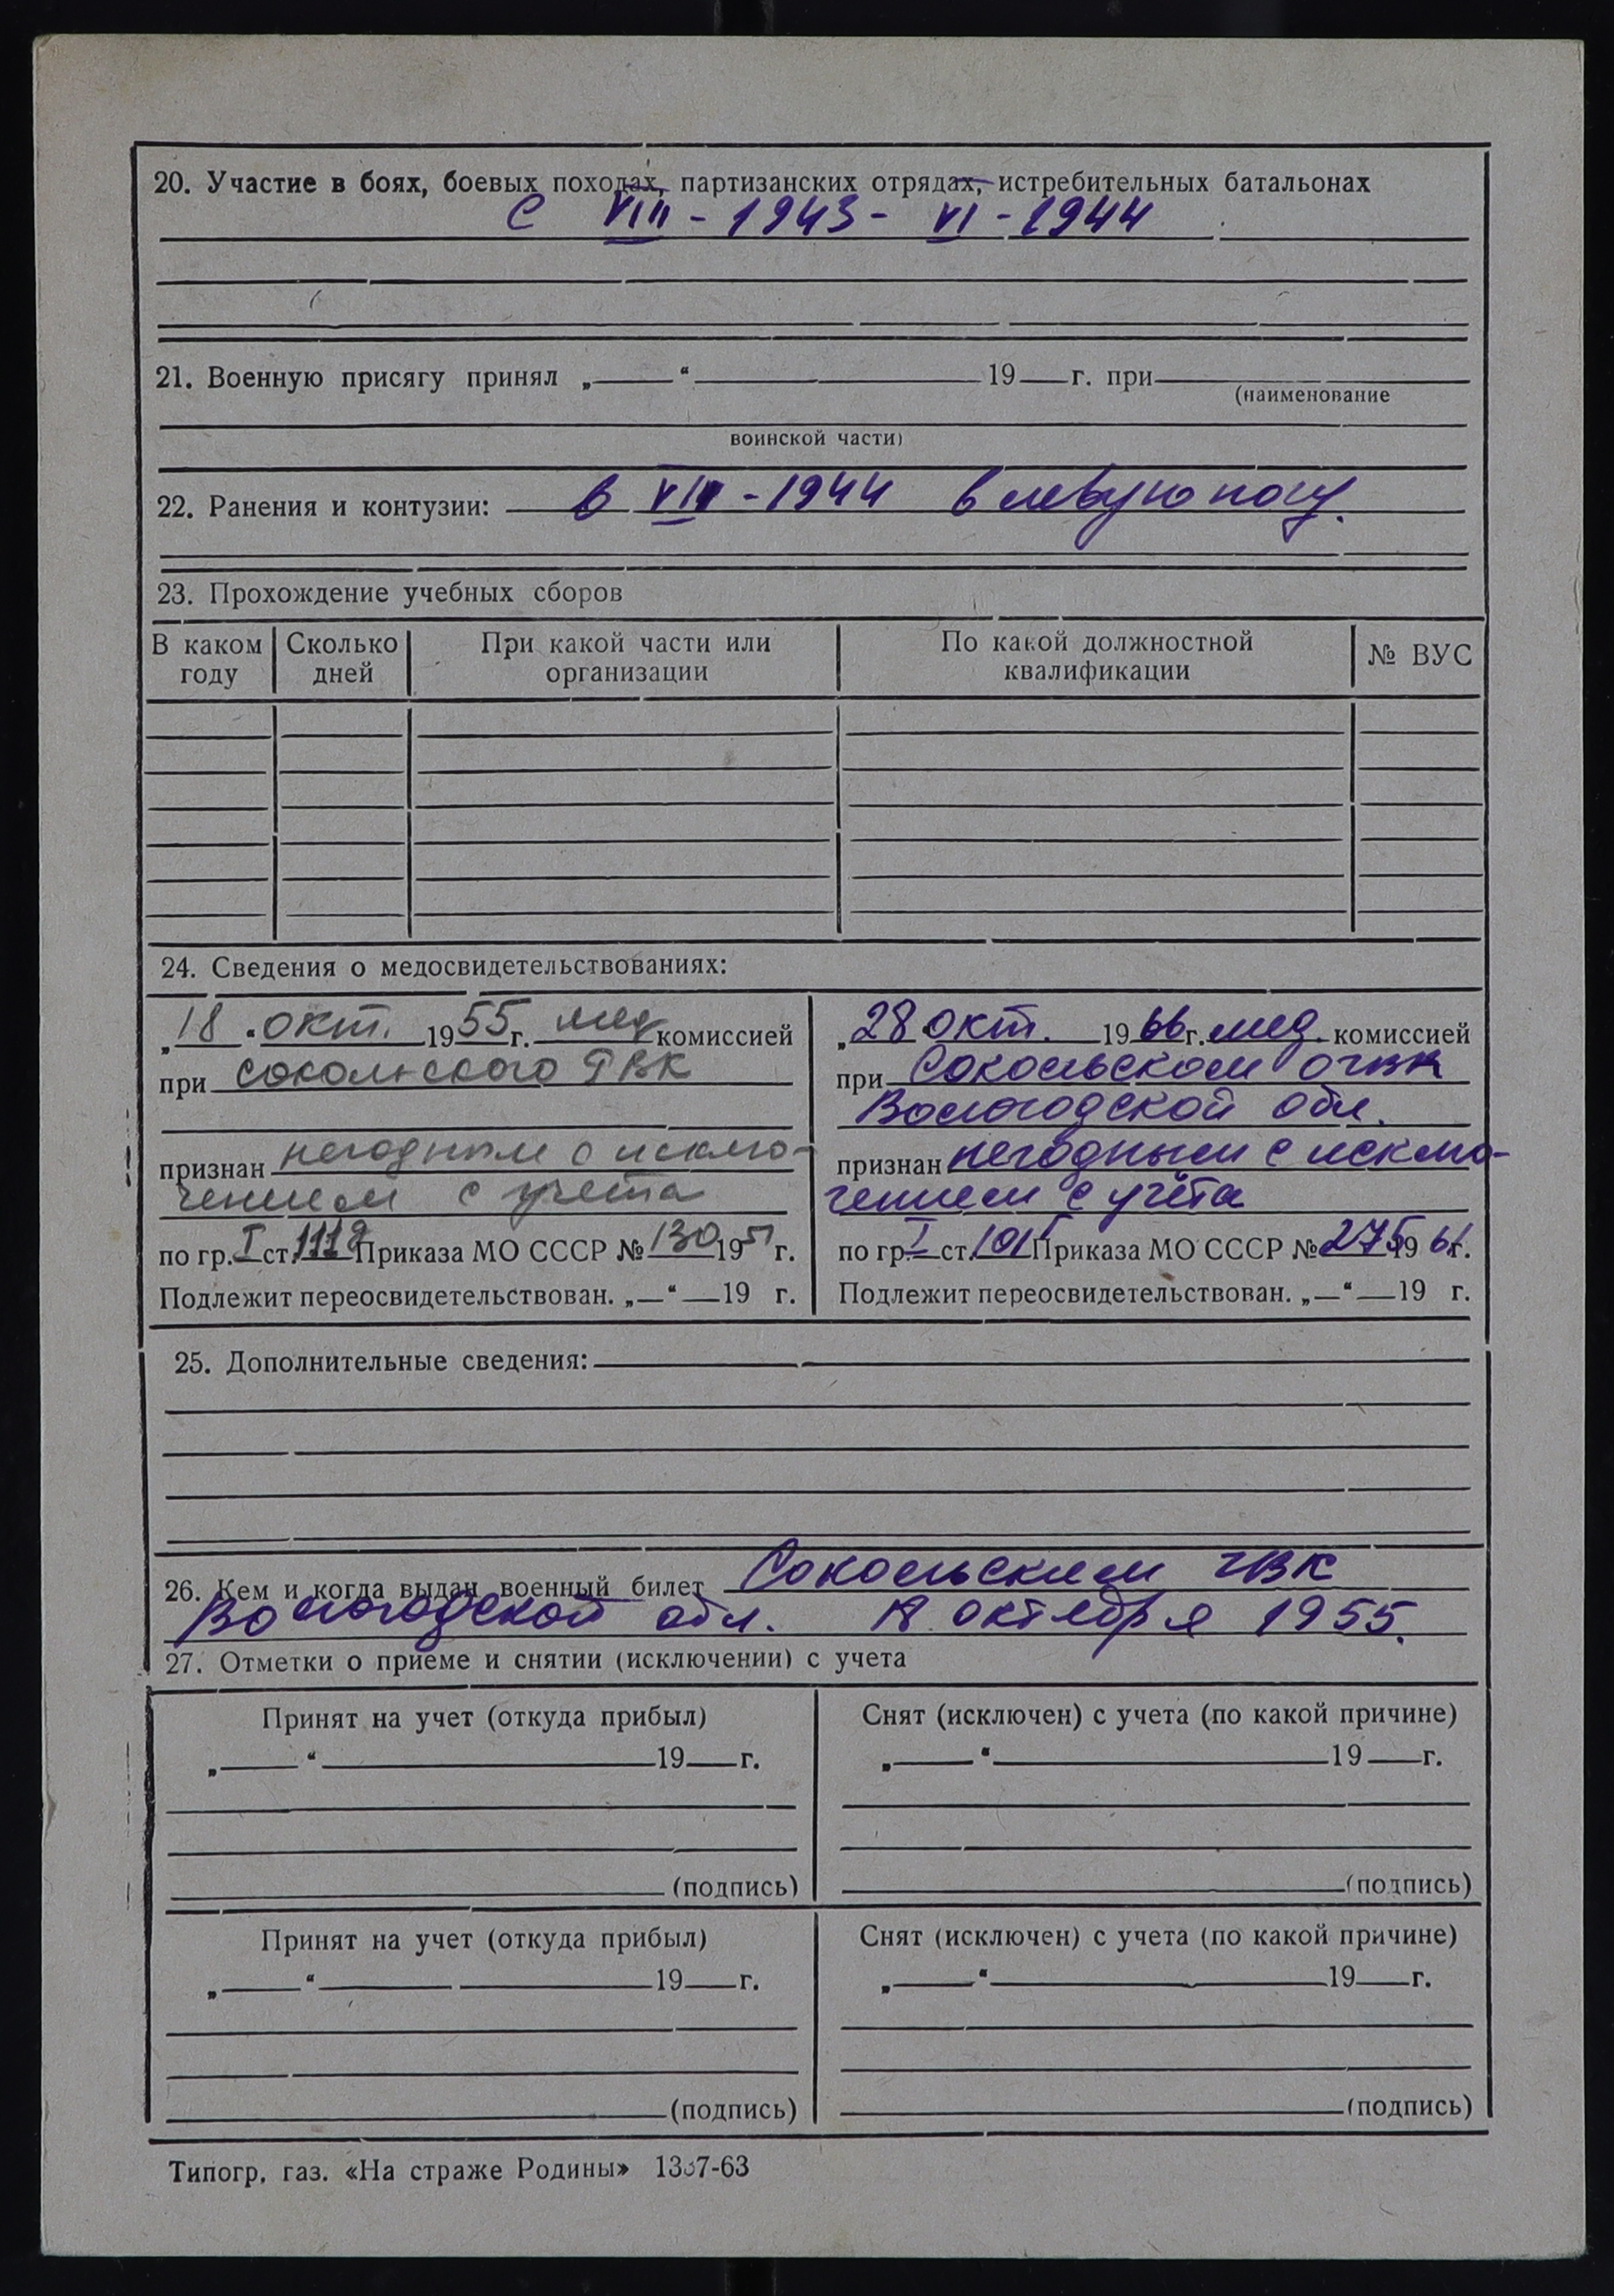 20. Участие в боях, боевых походах, партизанских отрядах, истребительных батальонах
с VIII - 1943 - VI - 1944
21. Военную присягу принял „ “ 19 г. при
(наименование
воинской части)
22. Ранения и контузии: в - 1944 в левую ногу.
23. Прохождение учебных сборов
В каком году Сколько дней При какой части или организации По какой должностной квалификации № ВУС
24. Сведения о медосвидетельствованиях:
„18 “ окт. 1955 г. мед комиссией
при Сокольского РВК
признан негодным с исклю-
чением с учета
по гр. I ст. Приказа МО СССР № 130 1951 г.
Подлежит переосвидетельствован. „ “ 19 г.
„28 окт. 1966 г. мед. комиссией
при Сокольском
Вологодской обл.
признан негодным с исклю-
чением с учёта
по гр. I ст. Приказа МО СССР № 275 19 г.
Подлежит переосвидетельствован. „ “ 19 г.
25. Дополнительные сведения:
26. Кем и когда выдан военный билет Сокольским
Вологодской обл. 18 октября 1955.
27. Отметки о приеме и снятии (исключении) с учета
Принят на учет (откуда прибыл)
„ “ 19 г.
(подпись)
Снят (исключен) с учета (по какой причине)
„ “ 19 г.
(подпись)
Принят на учет (откуда прибыл)
„ “ 19 г.
(подпись)
Снят (исключен) с учета (по какой причине)
„ “ 19 г.
(подпись)
Типогр. газ. «На страже Родины»